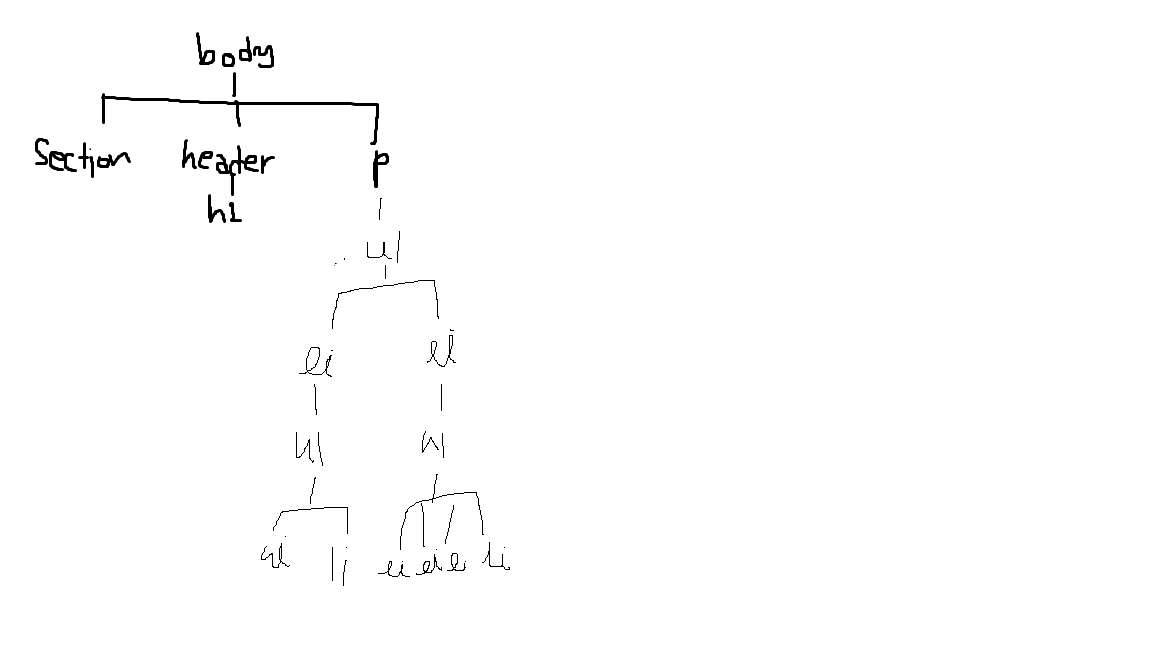 body
Section header p
h1
ul
li li
ul ul
li li li li li li